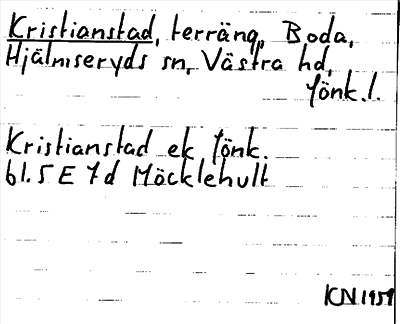 Kristianstad, terräng, Boda,
Hjälmseryds sn, Västra hd,
Jönk. l.
Kristianstad ek Jönk.
bl. 5 E 7d Möcklehult
KN 1959